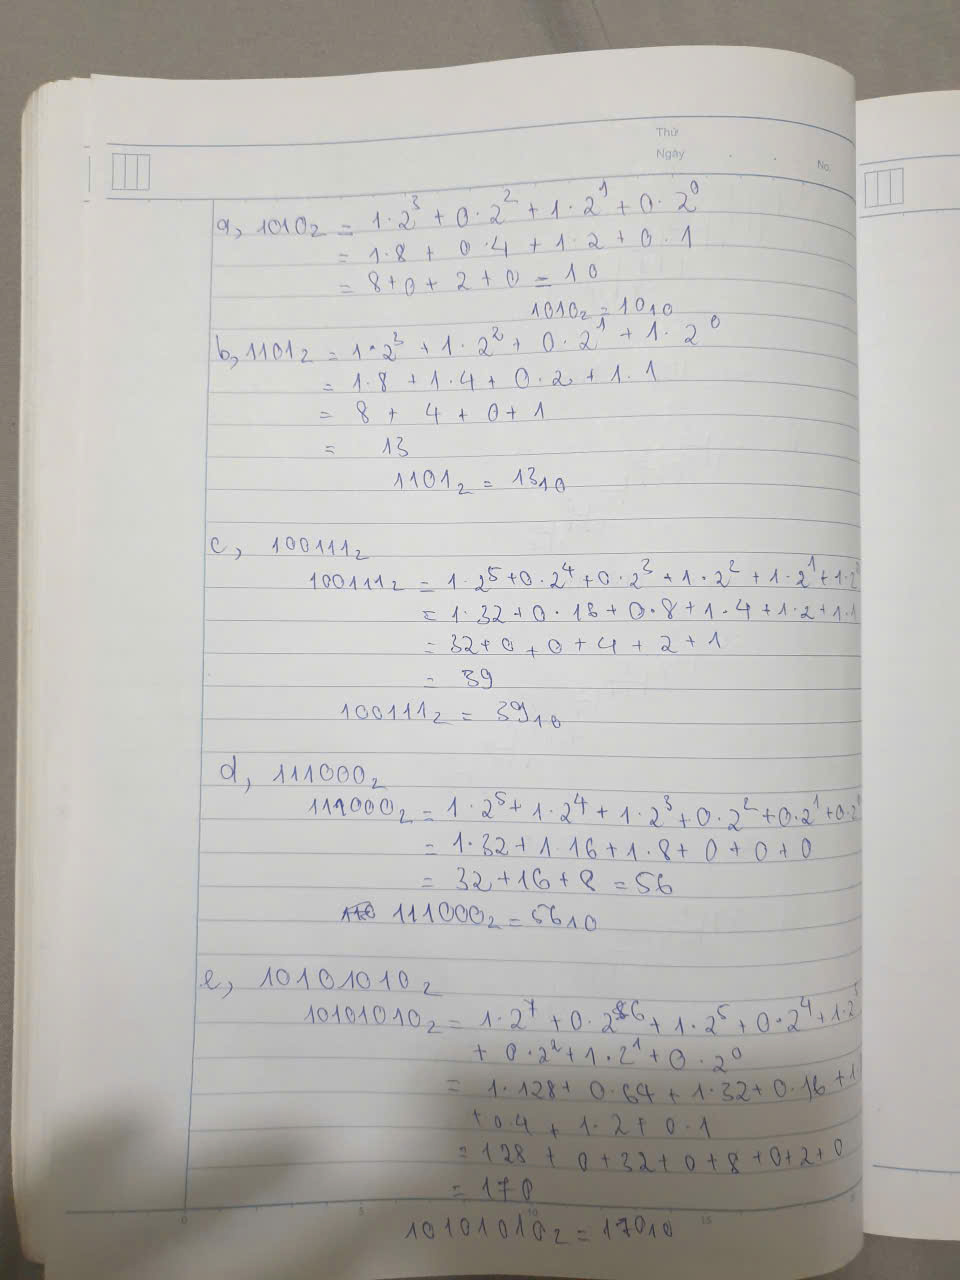 Thứ
Ngày
No.
a, 1010₂ = 1·2³ + 0·2² + 1·2¹ + 0·2⁰
= 1·8 + 0·4 + 1·2 + 0·1
= 8+0+2+0 = 10
1010₂ = 10₁₀
b, 1101₂ = 1·2³ + 1·2² + 0·2¹ + 1·2⁰
= 1·8 + 1·4 + 0·2 + 1·1
= 8 + 4 + 0 + 1
= 13
1101₂ = 13₁₀
c, 100111₂
100111₂ = 1·2⁵ + 0·2⁴ + 0·2³ + 1·2² + 1·2¹ + 1·2⁰
= 1·32 + 0·16 + 0·8 + 1·4 + 1·2 + 1·1
= 32 + 0 + 0 + 4 + 2 + 1
= 39
100111₂ = 39₁₀
d, 111000₂
111000₂ = 1·2⁵ + 1·2⁴ + 1·2³ + 0·2² + 0·2¹ + 0·2⁰
= 1·32 + 1·16 + 1·8 + 0 + 0 + 0
= 32 + 16 + 8 = 56
111000₂ = 56₁₀
e, 10101010₂
10101010₂ = 1·2⁷ + 0·2⁶ + 1·2⁵ + 0·2⁴ + 1·2³
+ 0·2² + 1·2¹ + 0·2⁰
= 1·128 + 0·64 + 1·32 + 0·16 + 1
+ 0·4 + 1·2 + 0·1
= 128 + 0 + 32 + 0 + 8 + 0 + 2 + 0
= 170
10101010₂ = 170₁₀
0 5 10 15